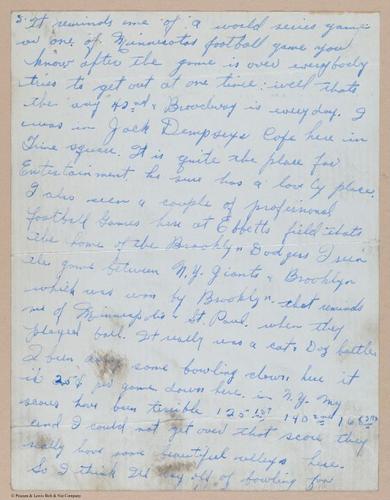 3. It reminds me of a world series game
or one of Minnesotas football game you
know after the game is over everybody
tries to get out at one time: well thats
the way 42nd & Broadway is everyday. I
was in Jack Dempseys Cafe here in
Time square. It is quite the place for
Entertainment he sure has a lovely place.
I also seen a couple of professional
football Games here at Ebbetts field thats
the home of the Brooklyn Dodgers I seen
the game between N.Y. Giants & Brooklyn
which was won by Brooklyn. that reminds
me of Minneapolis & St. Paul. when they
played ball. It really was a cat & Dog battles
I been some bowling down here it
is 25¢ per game down here. in N.Y. My
scores have been terrible 125-1st 140 2nd 168 3rd
and I could not get over that score they
really have some beautiful alleys here.
So I think I'll lay off of bowling for
© Putnam & Lewis Belt & Nut Company